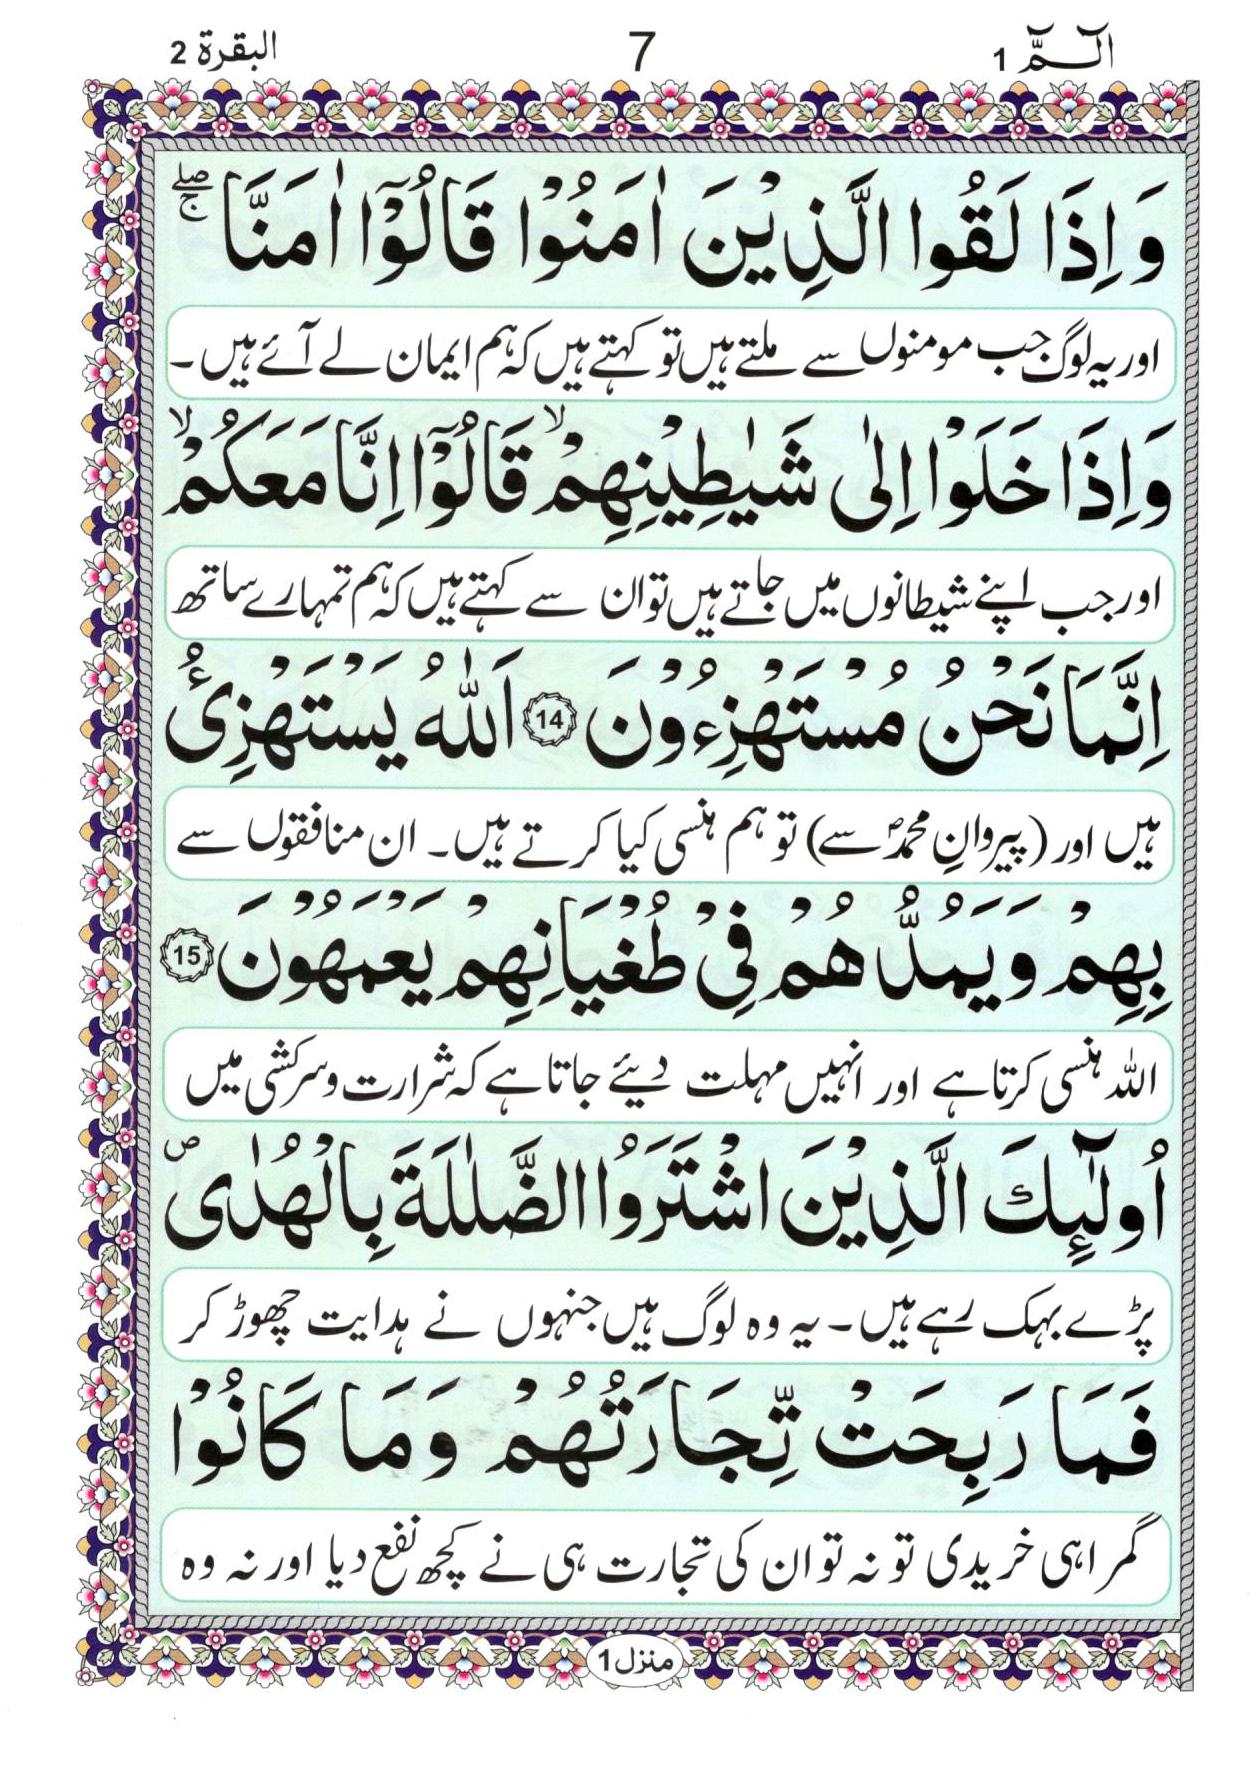 الٓمّٓ 1 7 البقرة 2
وَاِذَا لَقُوا الَّذِيْنَ اٰمَنُوْا قَالُوْٓا اٰمَنَّا ۖۚ
اور یہ لوگ جب مومنوں سے ملتے ہیں تو کہتے ہیں کہ ہم ایمان لے آئے ہیں۔
وَاِذَا خَلَوْا اِلٰى شَيٰطِيْنِهِمْ ۙ قَالُوْٓا اِنَّا مَعَكُمْ ۙ
اور جب اپنے شیطانوں میں جاتے ہیں تو ان سے کہتے ہیں کہ ہم تمہارے ساتھ
اِنَّمَا نَحْنُ مُسْتَهْزِءُوْنَ 14 اَللّٰهُ يَسْتَهْزِئُ
ہیں اور (پیروانِ محمدؐ سے) تو ہم ہنسی کیا کرتے ہیں۔ ان منافقوں سے
بِهِمْ وَيَمُدُّهُمْ فِيْ طُغْيَانِهِمْ يَعْمَهُوْنَ 15
اللہ ہنسی کرتا ہے اور انہیں مہلت دیئے جاتا ہے کہ شرارت و سرکشی میں
اُولٰٓئِكَ الَّذِيْنَ اشْتَرَوُا الضَّلٰلَةَ بِالْهُدٰى ۪
پڑے بہک رہے ہیں۔ یہ وہ لوگ ہیں جنہوں نے ہدایت چھوڑ کر
فَمَا رَبِحَتْ تِّجَارَتُهُمْ وَمَا كَانُوْا
گمراہی خریدی تو نہ تو ان کی تجارت ہی نے کچھ نفع دیا اور نہ وہ
منزل 1